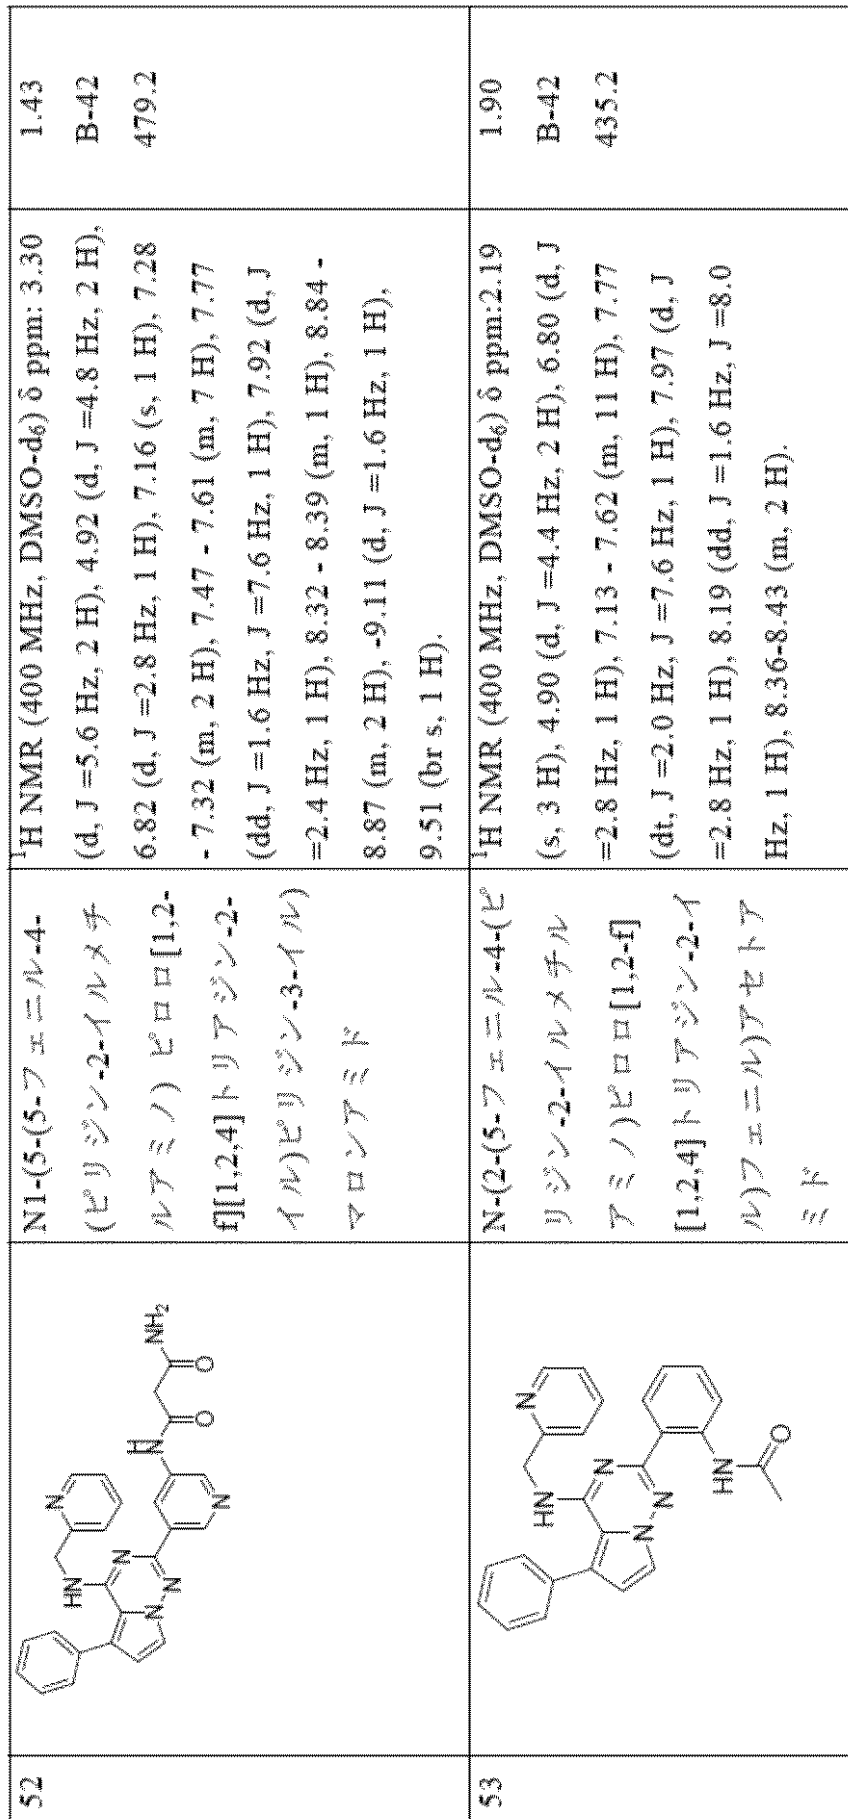 52
NH₂
O
O
H
N
N
N
HN
N
N
N
N1-(5-(5-フェニル-4-
(ピリジン-2-イルメチ
ルアミノ) ピロロ[1,2-
f][1,2,4]トリアジン-2-
イル)ピリジン-3-イル)
マロンアミド
¹H NMR (400 MHz, DMSO-d₆) δ ppm: 3.30
(d, J =5.6 Hz, 2 H), 4.92 (d, J =4.8 Hz, 2 H),
6.82 (d, J =2.8 Hz, 1 H), 7.16 (s, 1 H), 7.28
- 7.32 (m, 2 H), 7.47 - 7.61 (m, 7 H), 7.77
(dd, J =1.6 Hz, J =7.6 Hz, 1 H), 7.92 (d, J
=2.4 Hz, 1 H), 8.32 - 8.39 (m, 1 H), 8.84 -
8.87 (m, 2 H), -9.11 (d, J =1.6 Hz, 1 H),
9.51 (br s, 1 H).
1.43
B-42
479.2
53
N
HN
N
N
N
NH
O
N-(2-(5-フェニル-4-(ピ
リジン-2-イルメチル
アミノ)ピロロ[1,2-f]
[1,2,4]トリアジン-2-イ
ル)フェニル)アセトア
ミド
¹H NMR (400 MHz, DMSO-d₆) δ ppm:2.19
(s, 3 H), 4.90 (d, J =4.4 Hz, 2 H), 6.80 (d, J
=2.8 Hz, 1 H), 7.13 - 7.62 (m, 11 H), 7.77
(dt, J =2.0 Hz, J =7.6 Hz, 1 H), 7.97 (d, J
=2.8 Hz, 1 H), 8.19 (dd, J =1.6 Hz, J =8.0
Hz, 1 H), 8.36-8.43 (m, 2 H).
1.90
B-42
435.2